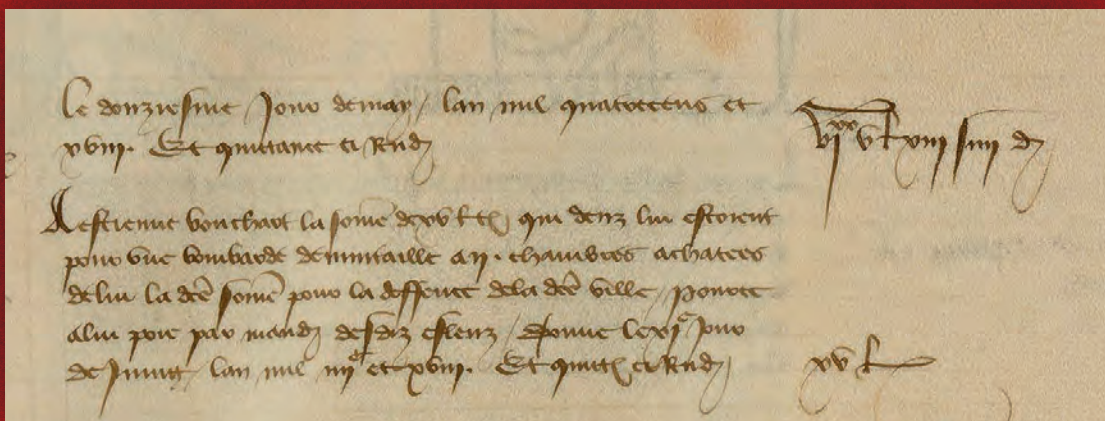 le douziesme jour de may, lan mil quatrecens et
xviii. Et quictance ci Rend
vi xx v l xiii s iiii d
A estienne bouchart la some de xv l t qui deuz lui estoient
pour une bombarde de mitaille a ii. chambres achatees
de lui la dce some pour la deffence de la dce ville, Pource
a lui poie par mand desdiz esleuz, donne le xi e jour
de Juing, lan mil iiii c et xviii. Et quict ci Rend
xv l